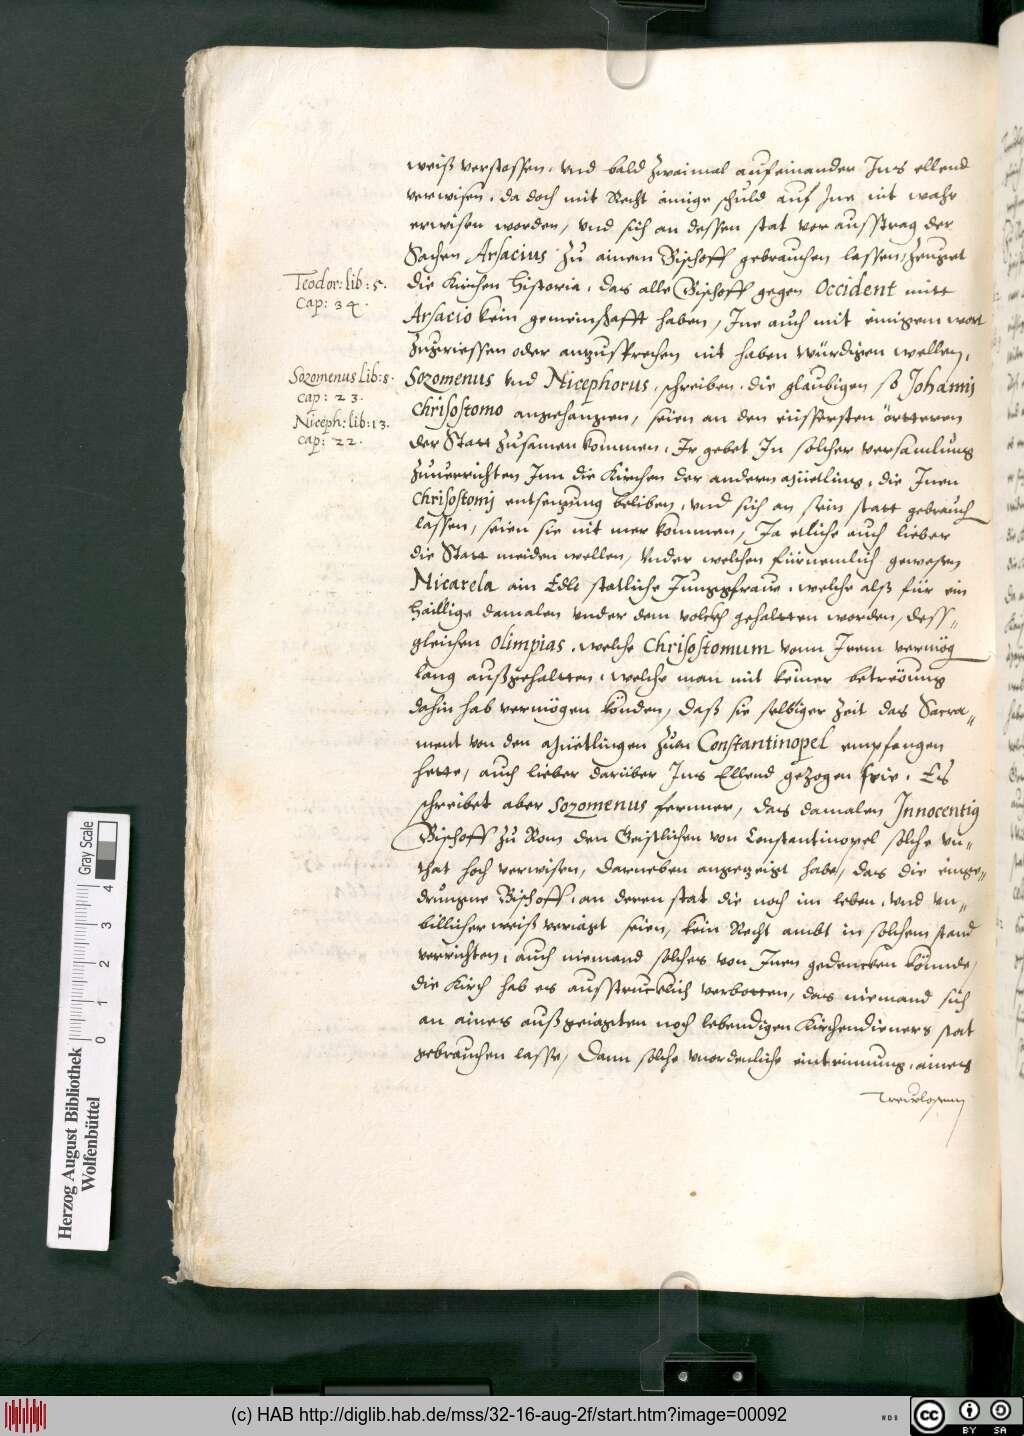 weiß verstossen, vnd bald zwaimal aufeinander Ins ellend
verwisen, da doch mit Recht ainige schuld auf Ine nit wahr
erwisen worden, vnd sich an dessen stat vor ausstrag der
Sachen Arsacius zu ainem Bischoff gebrauchen lassen, zeuget
Teodor: lib: 5.
Cap: 34.
die Kirchen Historia, das alle Bischoff gegen Occident mitt
Arsacio kein gemeinschafft haben, Ine auch mit einigem wort
zugriessen oder anzusprechen nit haben würdigen wellen,
Sozomenus lib: 8.
cap: 23.
Niceph: lib: 13.
cap: 22.
Sozomenus vnd Nicephorus, schreiben, die glaubigen so Johannis
Chrisostomo angehangen, seien an den eüssersten örtteren
der Statt zusamen kommen, Ir gebet In solcher versamlung
zuuerrichten Inn die Kirchen der andern, die Inen
Chrisostomi entsetzung beliben, vnd sich an sein statt gebrauch
lassen, seien sie nit mer kommen, Ja etliche auch lieber
die Statt meiden wellen, Vnder welchen fürnemlich gewesen
Nicarela ain Edle statliche Junggfraw, welche alß für ein
Haillige damalen vnder dem volckh gehaltten worden, dess„
gleichen Olimpias, welche Chrisostomum vonn Irem vermög
lang außgehaltten, welche man mit keiner betröung
dahin hab vermögen könden, daß sie selbiger zeit das Sacra„
ment von den zum Constantinopel empfangen
hette, auch lieber darüber Ins Ellend gezogen seie. Es
schreibet aber Sozomenus fernner, das damalen Innocentig
Bischoff zu Rom den Geistlichen von Constantinopel solche vn„
that hoch verwisen, darneben angezeigt habe, das die einge„
drungne Bischoff, an deren stat die noch im leben, vnd vn„
billicher weiß veriagt seien, kein Recht ambt in solchem stand
verrichten, auch niemand solches von Inen gedencken könnde,
die Kirch hab es ausstrucklich verbotten, das niemand sich
an aines außgeiagten noch lebendigen Kirchendieners stat
gebrauchen lasse, Dann solche vnordenliche eintrinnung, aines
Trewlosenn
Herzog August Bibliothek
Wolfenbüttel
0 1 2 3 4
Gray Scale
(c) HAB http://diglib.hab.de/mss/32-16-aug-2f/start.htm?image=00092
WDB
cc BY SA